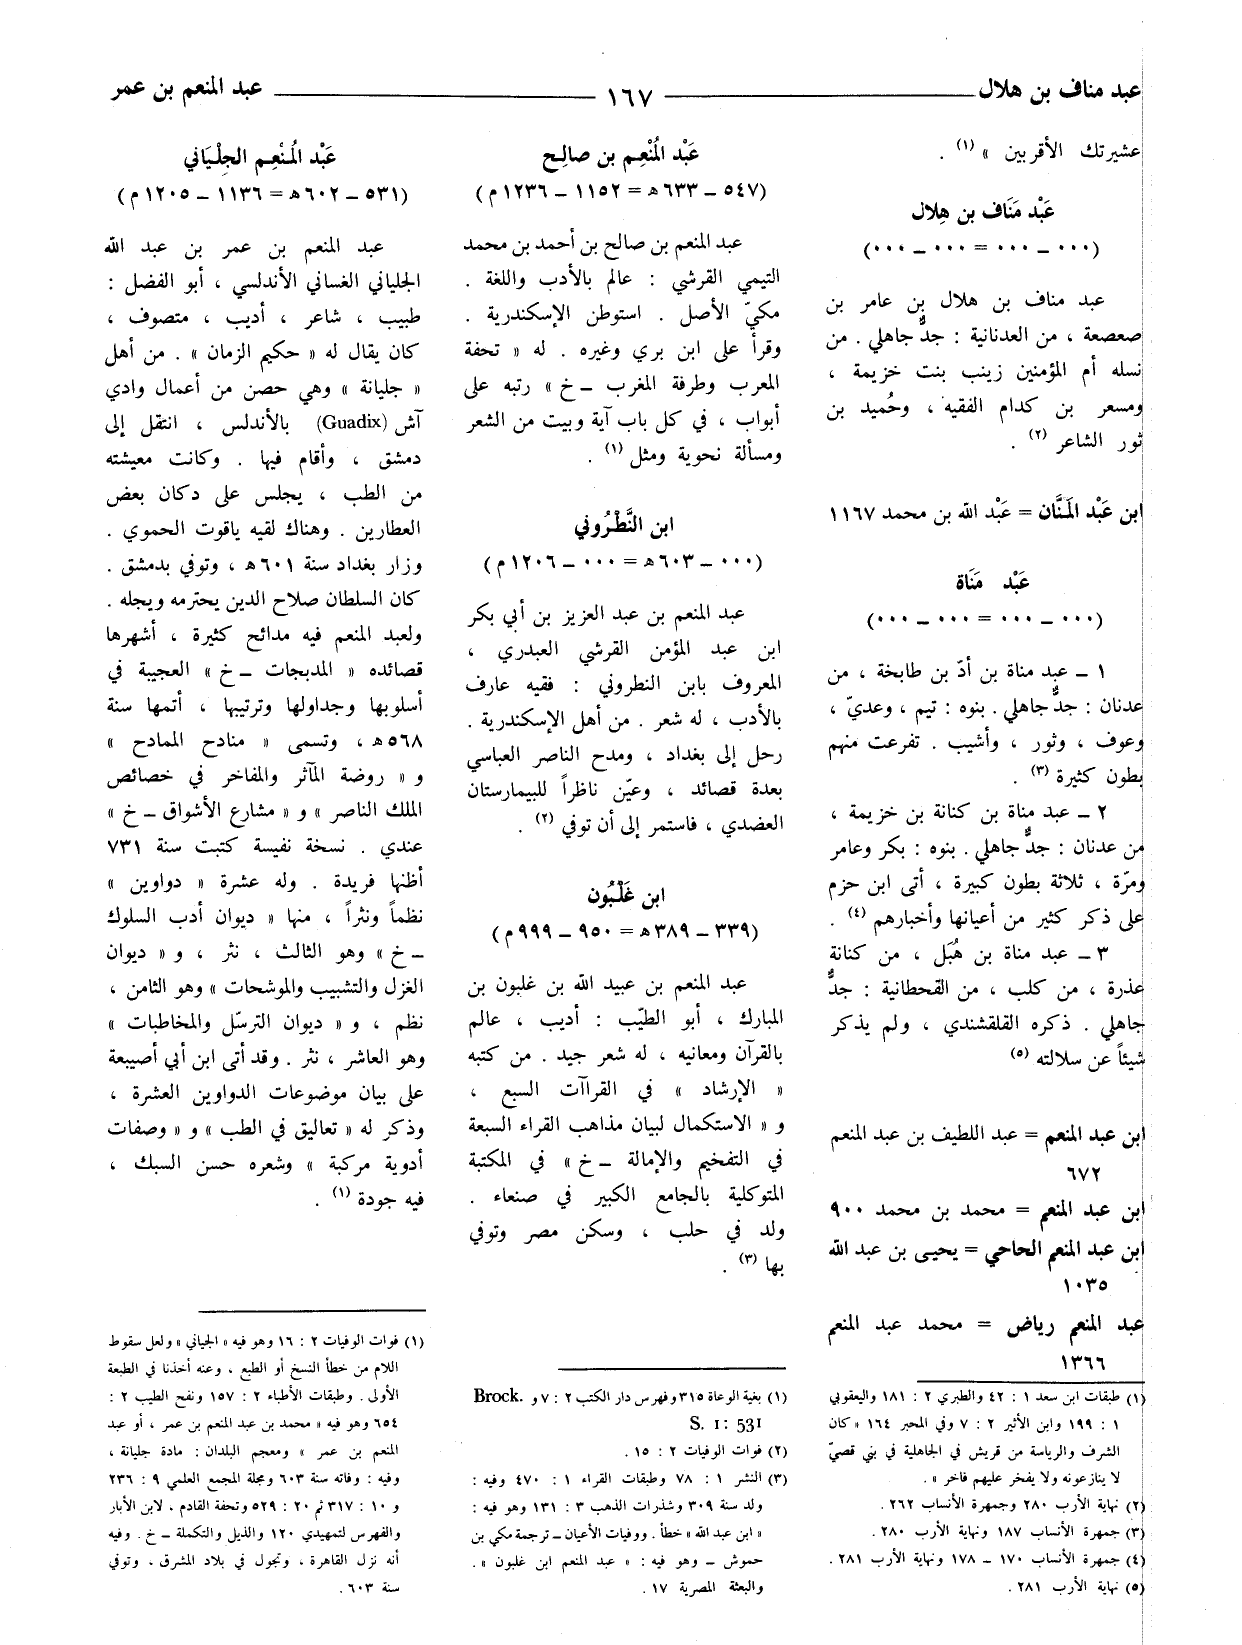 عبد مناف بن هلال ١٦٧ عبد المنعم بن عمر
عشيرتك الأقربين » (١) .
عَبْد مَنَاف بن هِلال
(٠٠٠ ــ ٠٠٠ = ٠٠٠ ــ ٠٠٠)
عبد مناف بن هلال بن عامر بن
صعصعة ، من العدنانية : جدٌّ جاهلي . من
نسله أم المؤمنين زينب بنت خزيمة ،
ومسعر بن كدام الفقيه ، وحُميد بن
ثور الشاعر (٢) .
ابن عَبْد المَنَّان = عَبْد الله بن محمد ١١٦٧
عَبْد مَنَاة
(٠٠٠ ــ ٠٠٠ = ٠٠٠ ــ ٠٠٠)
١ ــ عبد مناة بن أدّ بن طابخة ، من
عدنان : جدٌّ جاهلي . بنوه : تيم ، وعديّ ،
وعوف ، وثور ، وأشيب . تفرعت منهم
بطون كثيرة (٣) .
٢ ــ عبد مناة بن كنانة بن خزيمة ،
من عدنان : جدٌّ جاهلي . بنوه : بكر وعامر
ومرّة ، ثلاثة بطون كبيرة ، أتى ابن حزم
على ذكر كثير من أعيانها وأخبارهم (٤) .
٣ ــ عبد مناة بن هُبَل ، من كنانة
عذرة ، من كلب ، من القحطانية : جدٌّ
جاهلي . ذكره القلقشندي ، ولم يذكر
شيئاً عن سلالته (٥)
ابن عبد المنعم = عبد اللطيف بن عبد المنعم
٦٧٢
ابن عبد المنعم = محمد بن محمد ٩٠٠
ابن عبد المنعم الحاحي = يحيى بن عبد الله
١٠٣٥
عبد المنعم رياض = محمد عبد المنعم
١٣٦٦
(١) طبقات ابن سعد ١ : ٤٢ والطبري ٢ : ١٨١ واليعقوبي
١ : ١٩٩ وابن الأثير ٢ : ٧ وفي المحبر ١٦٤ « كان
الشرف والرياسة من قريش في الجاهلية في بني قصيّ
لا ينازعونه ولا يفخر عليهم فاخر » .
(٢) نهاية الأرب ٢٨٠ وجمهرة الأنساب ٢٦٢ .
(٣) جمهرة الأنساب ١٨٧ ونهاية الأرب ٢٨٠ .
(٤) جمهرة الأنساب ١٧٠ ــ ١٧٨ ونهاية الأرب ٢٨١ .
(٥) نهاية الأرب ٢٨١ .
عَبْد المُنْعِم بن صالح
(٥٤٧ ــ ٦٣٣ هـ = ١١٥٢ ــ ١٢٣٦ م)
عبد المنعم بن صالح بن أحمد بن محمد
التيمي القرشي : عالم بالأدب واللغة .
مكيّ الأصل . استوطن الإسكندرية .
وقرأ على ابن بري وغيره . له « تحفة
المعرب وطرفة المغرب ــ خ » رتبه على
أبواب ، في كل باب آية وبيت من الشعر
ومسألة نحوية ومثل (١) .
ابن النَّطْرُوني
(٠٠٠ ــ ٦٠٣ هـ = ٠٠٠ ــ ١٢٠٦ م)
عبد المنعم بن عبد العزيز بن أبي بكر
ابن عبد المؤمن القرشي العبدري ،
المعروف بابن النطروني : فقيه عارف
بالأدب ، له شعر . من أهل الإسكندرية .
رحل إلى بغداد ، ومدح الناصر العباسي
بعدة قصائد ، وعيّن ناظراً للبيمارستان
العضدي ، فاستمر إلى أن توفي (٢) .
ابن غَلْبُون
(٣٣٩ ــ ٣٨٩ هـ = ٩٥٠ ــ ٩٩٩ م)
عبد المنعم بن عبيد الله بن غلبون بن
المبارك ، أبو الطيّب : أديب ، عالم
بالقرآن ومعانيه ، له شعر جيد . من كتبه
« الإرشاد » في القراآت السبع ،
و « الاستكمال لبيان مذاهب القراء السبعة
في التفخيم والإمالة ــ خ » في المكتبة
المتوكلية بالجامع الكبير في صنعاء .
ولد في حلب ، وسكن مصر وتوفي
بها (٣) .
(١) بغية الوعاة ٣١٥ وفهرس دار الكتب ٢ : ٧ و Brock.
S. 1: 531
(٢) فوات الوفيات ٢ : ١٥ .
(٣) النشر ١ : ٧٨ وطبقات القراء ١ : ٤٧٠ وفيه :
ولد سنة ٣٠٩ وشذرات الذهب ٣ : ١٣١ وهو فيه :
« ابن عبد الله » خطأ . ووفيات الأعيان ــ ترجمة مكي بن
حموش ــ وهو فيه : « عبد المنعم ابن غلبون » .
والبعثة المصرية ١٧ .
عَبْد المُنْعِم الجِلْيَاني
(٥٣١ ــ ٦٠٢ هـ = ١١٣٦ ــ ١٢٠٥ م)
عبد المنعم بن عمر بن عبد الله
الجلياني الغساني الأندلسي ، أبو الفضل :
طبيب ، شاعر ، أديب ، متصوف ،
كان يقال له « حكيم الزمان » . من أهل
« جليانة » وهي حصن من أعمال وادي
آش (Guadix) بالأندلس ، انتقل إلى
دمشق ، وأقام فيها . وكانت معيشته
من الطب ، يجلس على دكان بعض
العطارين . وهناك لقيه ياقوت الحموي .
وزار بغداد سنة ٦٠١ هـ ، وتوفي بدمشق .
كان السلطان صلاح الدين يحترمه ويجله .
ولعبد المنعم فيه مدائح كثيرة ، أشهرها
قصائده « المدبجات ــ خ » العجيبة في
أسلوبها وجداولها وترتيبها ، أتمها سنة
٥٦٨ هـ ، وتسمى « منادح الممادح »
و « روضة المآثر والمفاخر في خصائص
الملك الناصر » و « مشارع الأشواق ــ خ »
عندي . نسخة نفيسة كتبت سنة ٧٣١
أظنها فريدة . وله عشرة « دواوين »
نظماً ونثراً ، منها « ديوان أدب السلوك
ــ خ » وهو الثالث ، نثر ، و « ديوان
الغزل والتشبيب والموشحات » وهو الثامن ،
نظم ، و « ديوان الترسّل والمخاطبات »
وهو العاشر ، نثر . وقد أتى ابن أبي أصيبعة
على بيان موضوعات الدواوين العشرة ،
وذكر له « تعاليق في الطب » و « وصفات
أدوية مركبة » وشعره حسن السبك ،
فيه جودة (١) .
(١) فوات الوفيات ٢ : ١٦ وهو فيه « الجياني » ولعل سقوط
اللام من خطأ النسخ أو الطبع ، وعنه أخذنا في الطبعة
الأولى . وطبقات الأطباء ٢ : ١٥٧ ونفح الطيب ٢ :
٦٥٤ وهو فيه « محمد بن عبد المنعم بن عمر ، أو عبد
المنعم بن عمر » ومعجم البلدان : مادة جليانة ،
وفيه : وفاته سنة ٦٠٣ ومجلة المجمع العلمي ٩ : ٢٣٦
و ١٠ : ٣١٧ ثم ٢٠ : ٥٢٩ وتحفة القادم ، لابن الأبار
والفهرس لتمهيدي ١٢٠ والذيل والتكملة ــ خ . وفيه
أنه نزل القاهرة ، وتجول في بلاد المشرق ، وتوفي
سنة ٦٠٣ .